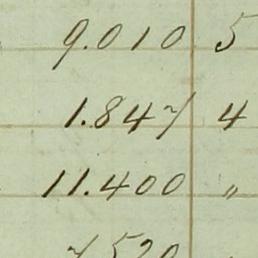 9.010 5
1.847 4
11.400 "
7.520